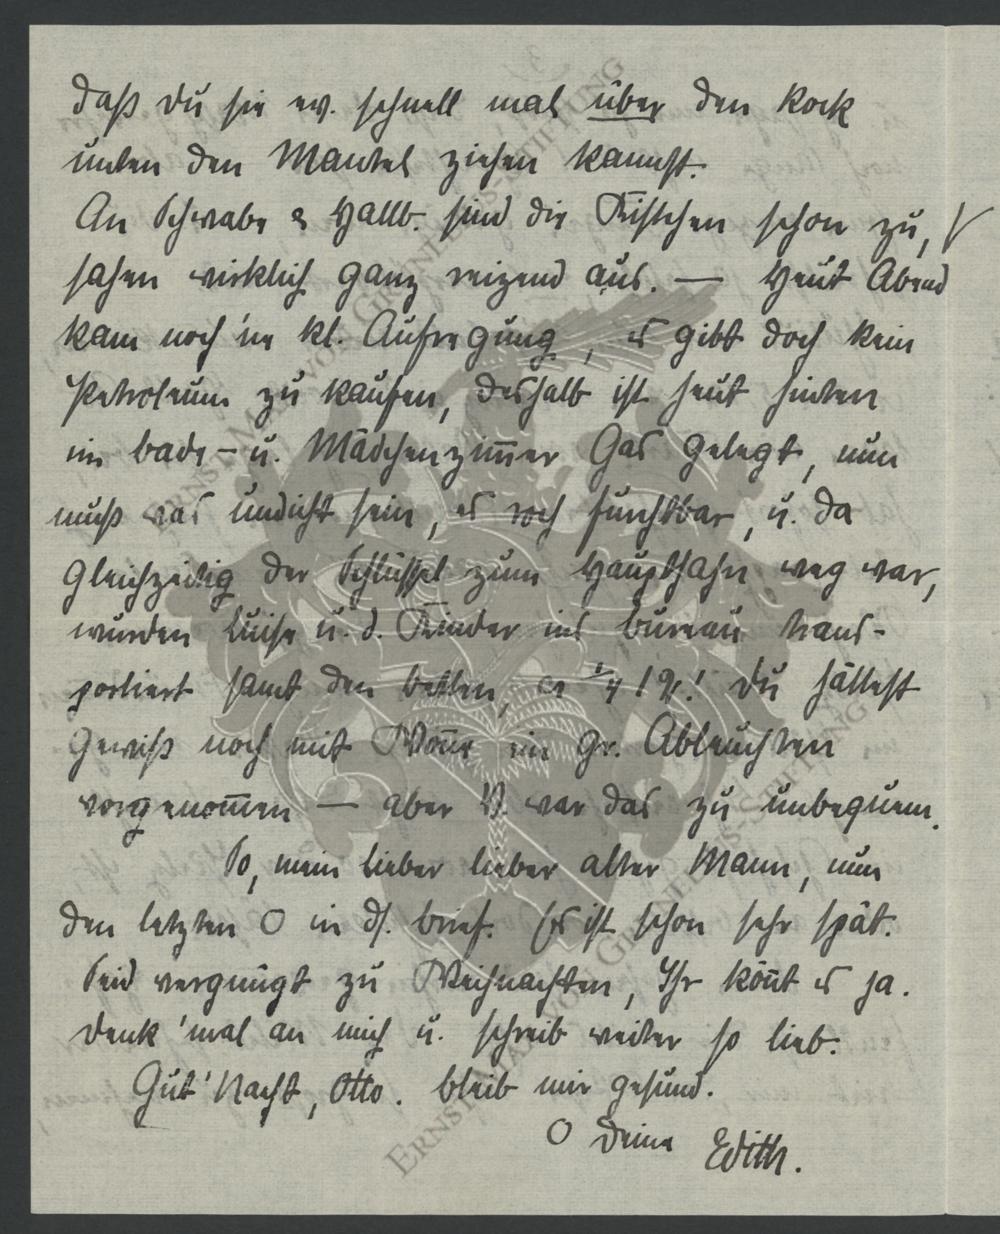 daß Du sie ev. schnell mal über den Rock
unten den Mantel ziehen kannst.
An Schwabe & Hallb. sind die Kistchen schon zu,
sahen wirklich ganz reizend aus. — Heut Abend
kam noch 'ne kl. Aufregung, es gibt doch kein
Petroleum zu kaufen, deshalb ist heut hinten
im Bade- u. Mädchenzim̄er Gas gelegt, nun
muß was undicht sein, es roch furchtbar, u. da
gleichzeitig der Schlüssel zum Haupthahn weg war,
wurden Luise u. d. Kinder ins Bureau trans-
portiert samt den Betten, ca 1/4 12! Du hättest
gewiß noch mit Won̄e ein gr. Ableuchten
vorgenom̄en — aber V. war das zu unbequem.
So, mein lieber lieber alter Mann, nun
den letzten O in ds. Brief. Es ist schon sehr spät.
Seid vergnügt zu Weihnachten, Ihr kön̄t es ja.
Denk 'mal an mich u. schreib weiter so lieb.
Gut' Nacht, Otto. Bleib mir gesund.
O Deine Edith.
ERNST MAX VON GRUNELIUS-STIFTUNG
ERNST MAX VON GRUNELIUS-STIFTUNG